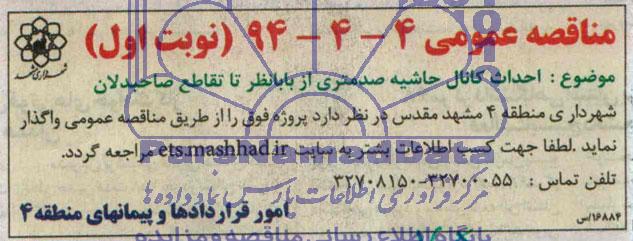 مناقصه عمومی ۴ - ۴ - ۹۴ (نوبت اول)
شهرداری مشهد
موضوع : احداث کانال حاشیه صدمتری از بابانظر تا تقاطع صاحبدلان
شهرداری منطقه ۴ مشهد مقدس در نظر دارد پروژه فوق را از طریق مناقصه عمومی واگذار
نماید .لطفا جهت کسب اطلاعات بشتر به سایت ets.mashhad.ir مراجعه گردد.
ParsNamadData
تلفن تماس : ۳۲۷۰۸۱۵۰-۳۲۷۰۰۰۵۵
مرکز فرآوری اطلاعات پارس نماد داده ها
امور قراردادها و پیمانهای منطقه ۴
۱۶۸۸۴/س
پایگاه اطلاع رسانی مناقصه و مزایده